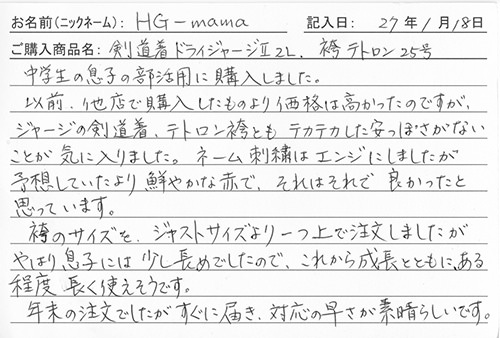 お名前(ニックネーム): HG-mama 記入日: 27年 1月18日
ご購入商品名: 剣道着ドライジャージⅡ2L. 袴テトロン25号
中学生の息子の部活用に購入しました。
以前、他店で購入したものより価格は高かったのですが、
ジャージの剣道着、テトロン袴とも テカテカした安っぽさがない
ことが気に入りました。ネーム刺繍はエンジにしましたが
予想していたより鮮やかな赤で、それはそれで良かったと
思っています。
袴のサイズを、ジャストサイズより一つ上で注文しましたが
やはり息子には少し長めでしたので、これから成長とともに、ある
程度長く使えそうです。
年末の注文でしたがすぐに届き、対応の早さが素晴らしいです。